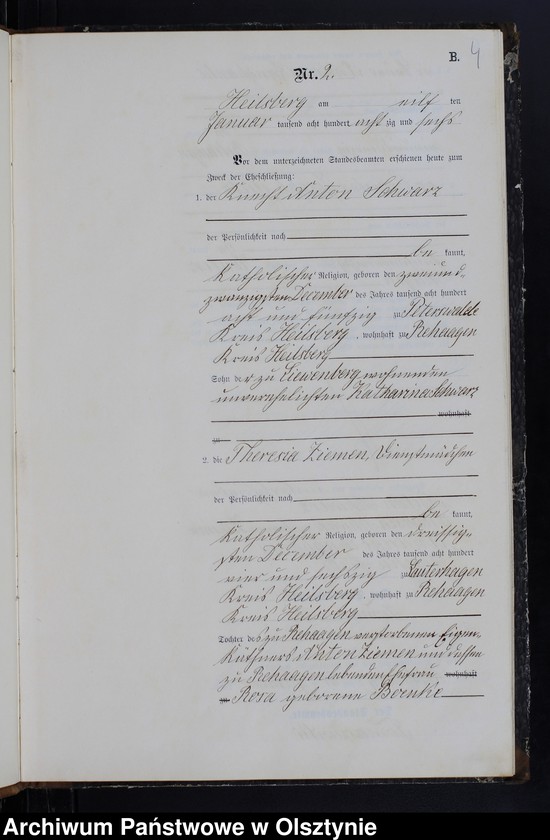 B. 4
Nr. 2.
Heilsberg am eilf ten
Januar tausend acht hundert acht zig und sechs
Vor dem unterzeichneten Standesbeamten erschienen heute zum
Zweck der Eheschließung:
1. der Knecht Anton Schwarz
der Persönlichkeit nach
be kannt,
Katholischer Religion, geboren den zweiund-
zwanzigsten December des Jahres tausend acht hundert
acht und fünfzig zu Peterswalde
Kreis Heilsberg, wohnhaft zu Rehaagen
Kreis Heilsberg
Sohn der zu Liewenberg wohnenden
unverehelichten Katharina Schwarz
wohnhaft
zu
2. die Theresia Ziemen, Dienstmädchen
der Persönlichkeit nach
be kannt,
Katholischer Religion, geboren den dreissig-
sten December des Jahres tausend acht hundert
vier und sechszig zu Lauterhagen
Kreis Heilsberg, wohnhaft zu Rehaagen
Kreis Heilsberg
Tochter des zu Rehaagen verstorbenen Eigen-
käthners Anton Ziemen und dessen
zu Rehaagen lebenden Ehefrau wohnhaft
zu Rosa geborene Boenke
Archiwum Państwowe w Olsztynie